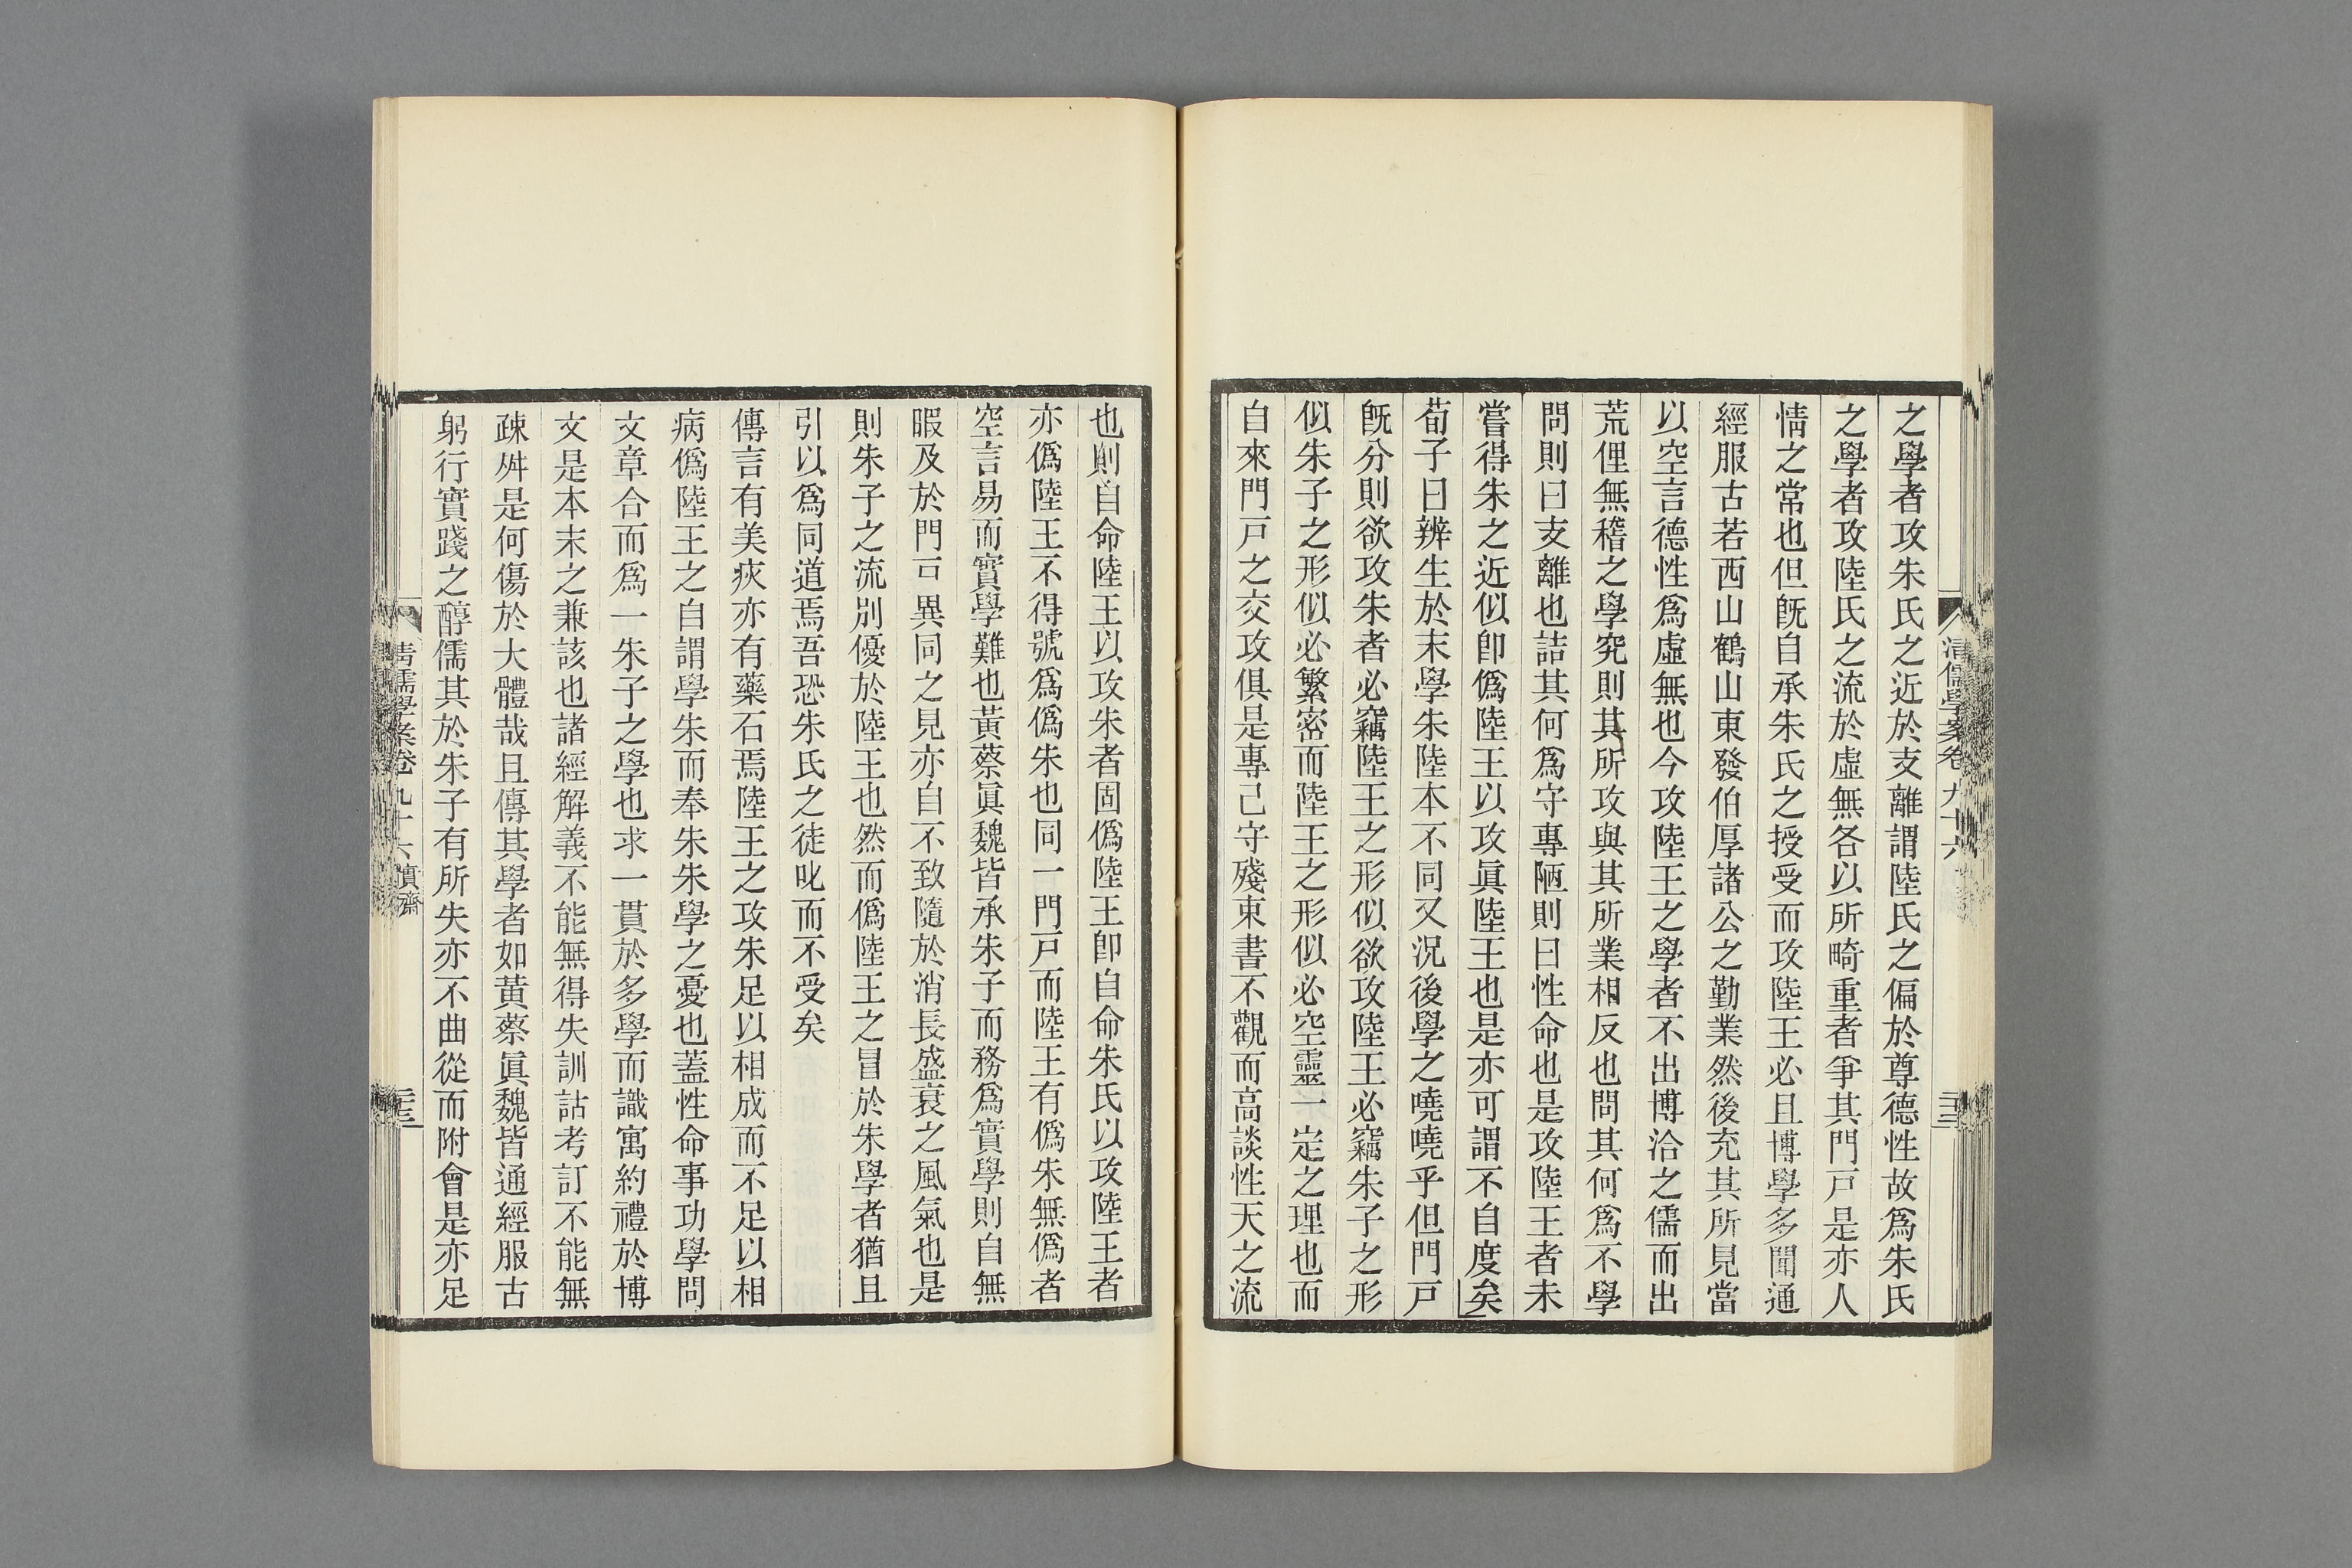 清儒學案卷九十六
二十二
之學者攻朱氏之近於支離謂陸氏之偏於尊德性故爲朱氏
之學者攻陸氏之流於虛無各以所畸重者爭其門戸是亦人
情之常也但旣自承朱氏之授受而攻陸王必且博學多聞通
經服古若西山鶴山東發伯厚諸公之勤業然後充其所見當
以空言德性爲虛無也今攻陸王之學者不出博洽之儒而出
荒俚無稽之學究則其所攻與其所業相反也問其何爲不學
問則曰支離也詰其何爲守專陋則曰性命也是攻陸王者未
嘗得朱之近似卽僞陸王以攻眞陸王也是亦可謂不自度矣
荀子曰辨生於末學朱陸本不同又況後學之嘵嘵乎但門戸
旣分則欲攻朱者必竊陸王之形似欲攻陸王必竊朱子之形
似朱子之形似必繁密而陸王之形似必空靈一定之理也而
自來門戸之交攻俱是專己守殘束書不觀而高談性天之流
也則自命陸王以攻朱者固僞陸王卽自命朱氏以攻陸王者
亦僞陸王不得號爲僞朱也同一門戸而陸王有僞朱無僞者
空言易而實學難也黃蔡眞魏皆承朱子而務爲實學則自無
暇及於門戸異同之見亦自不致隨於消長盛衰之風氣也是
則朱子之流別優於陸王也然而僞陸王之冒於朱學者猶且
引以爲同道焉吾恐朱氏之徒叱而不受矣
傳言有美疢亦有藥石焉陸王之攻朱足以相成而不足以相
病僞陸王之自謂學朱而奉朱朱學之憂也蓋性命事功學問
文章合而爲一朱子之學也求一貫於多學而識寓約禮於博
文是本末之兼該也諸經解義不能無得失訓詁考訂不能無
疎舛是何傷於大體哉且傳其學者如黃蔡眞魏皆通經服古
躬行實踐之醇儒其於朱子有所失亦不曲從而附會是亦足
清儒學案卷九十六 實齋
二十三